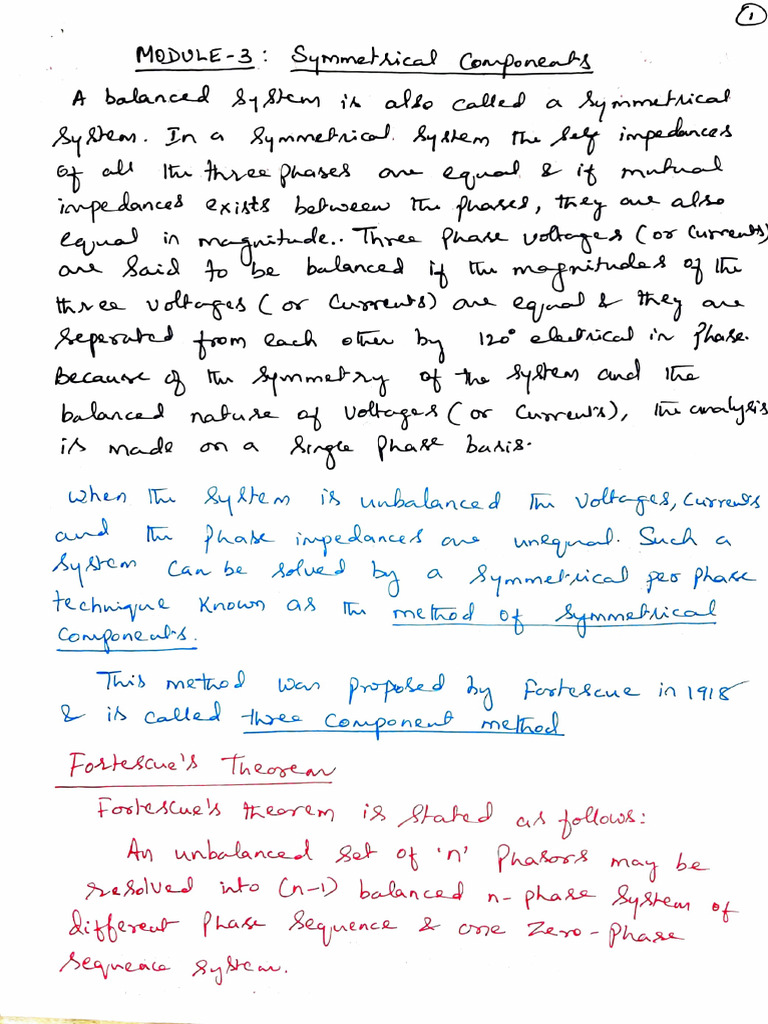 1
MODULE-3: Symmetrical Components
A balanced system is also called a symmetrical
system. In a symmetrical system the self impedances
of all the three phases are equal & if mutual
impedances exists between the phases, they are also
equal in magnitude.. Three phase voltages (or currents)
are said to be balanced if the magnitudes of the
three voltages (or currents) are equal & they are
seperated from each other by 120° electrical in phase.
Because of the symmetry of the system and the
balanced nature of voltages (or currents), the analysis
is made on a single phase basis.
When the system is unbalanced the voltages, currents
and the phase impedances are unequal. Such a
system can be solved by a symmetrical per phase
technique known as the method of symmetrical
components.
This method was proposed by Fortescue in 1918
& is called three component method
Fortescue's Theorem
Fortescue's theorem is stated as follows:
An unbalanced set of 'n' phasors may be
resolved into (n-1) balanced n-phase system of
different phase sequence & one zero-phase
sequence system.